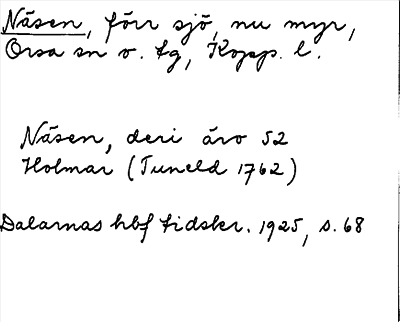 Näsen, förr sjö, nu myr,
Orsa sn v. tg, Kopp. l.
Näsen, deri äro 52
Holmar (Tuneld 1762)
Dalarnas hbf tidskr. 1925, s. 68